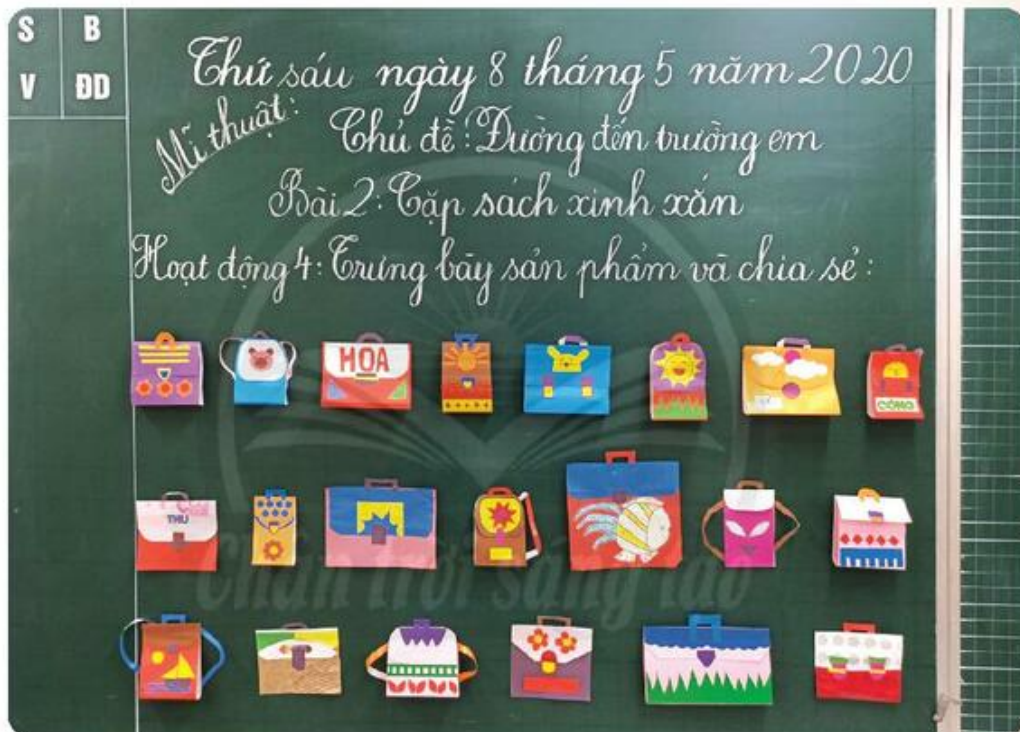 S B
V ĐD
Thứ sáu ngày 8 tháng 5 năm 2020
Mĩ thuật:
Chủ đề: Đường đến trường em
Bài 2: Cặp sách xinh xắn
Hoạt động 4: Trưng bày sản phẩm và chia sẻ:
HOA
CÔNG
THU
Chân trời sáng tạo